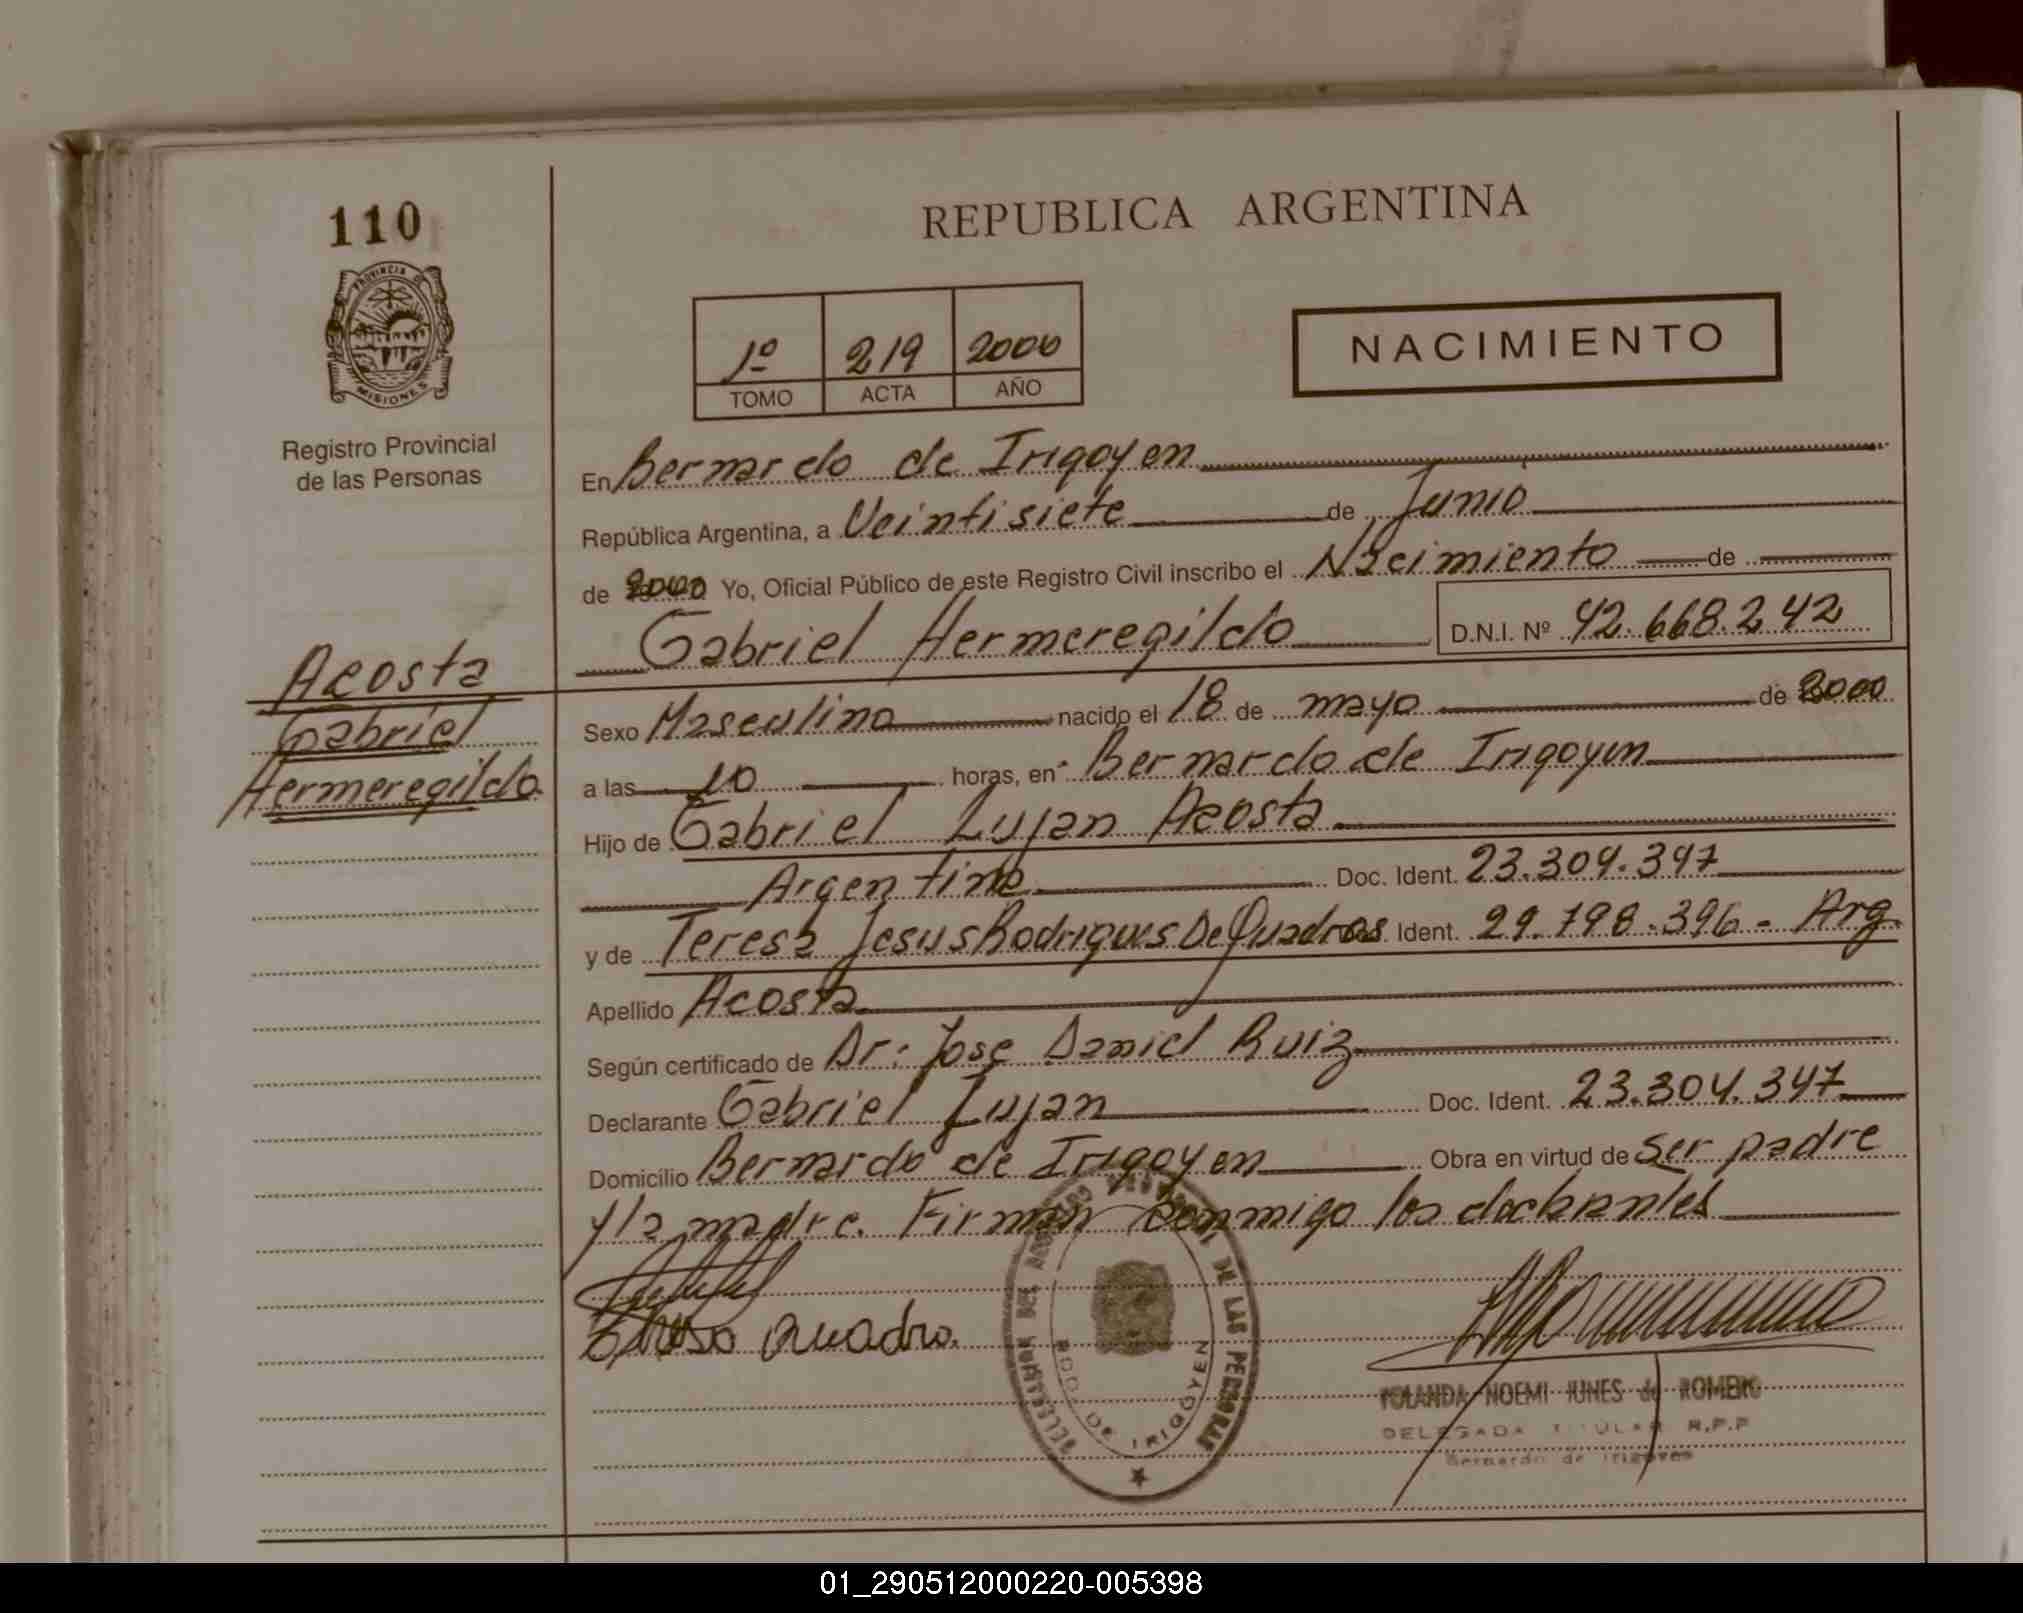 110
PROVINCIA DE
MISIONES
Registro Provincial
de las Personas
REPUBLICA ARGENTINA
1º 219 2000
TOMO ACTA AÑO
NACIMIENTO
En Bernardo de Irigoyen
República Argentina, a Veintisiete de Junio
de 2000 Yo, Oficial Público de este Registro Civil inscribo el Nacimiento de
Gabriel Hermeregildo D.N.I. Nº 42.668.242
Acosta
Gabriel
Hermeregildo
Sexo Masculino nacido el 18 de mayo de 2000
a las 10 horas, en Bernardo de Irigoyen
Hijo de Gabriel Lujan Acosta
Argentino Doc. Ident. 23.304.347
y de Teresa Jesus Rodrigues De Quadros Ident. 29.798.396 - Arg.
Apellido Acosta
Según certificado de Dr: Jose Daniel Ruiz
Declarante Gabriel Lujan Doc. Ident. 23.304.347
Domicilio Bernardo de Irigoyen Obra en virtud de ser padre
y la madre. Firman conmigo los declarantes
Quadro.
DE LAS PERSONAS
BDO. DE IRIGOYEN
YOLANDA NOEMI IUNES de ROMERO
DELEGADA TITULAR R.P.P
Bernardo de Irigoyen
01_290512000220-005398